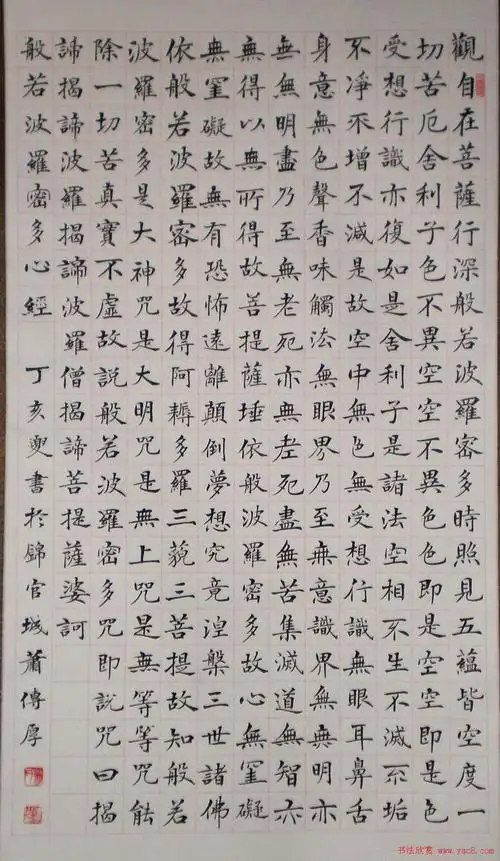 觀自在菩薩行深般若波羅密多時照見五蘊皆空度一
切苦厄舍利子色不異空空不異色色即是空空即是色
受想行識亦復如是舍利子是諸法空相不生不滅不垢
不淨不增不減是故空中無色無受想行識無眼耳鼻舌
身意無色聲香味觸法無眼界乃至無意識界無無明亦
無無明盡乃至無老死亦無老死盡無苦集滅道無智亦
無得以無所得故菩提薩埵依般波羅密多故心無罣礙
無罣礙故無有恐怖遠離顛倒夢想究竟涅槃三世諸佛
依般若波羅密多故得阿耨多羅三藐三菩提故知般若
波羅密多是大神咒是大明咒是無上咒是無等等咒能
除一切苦真實不虛故説般若波羅密多咒即説咒曰揭
諦揭諦波羅揭諦波羅僧揭諦菩提薩婆訶
般若波羅密多心經 丁亥叟書於錦官城蕭傳厚
书法欣赏 www.yac8.com